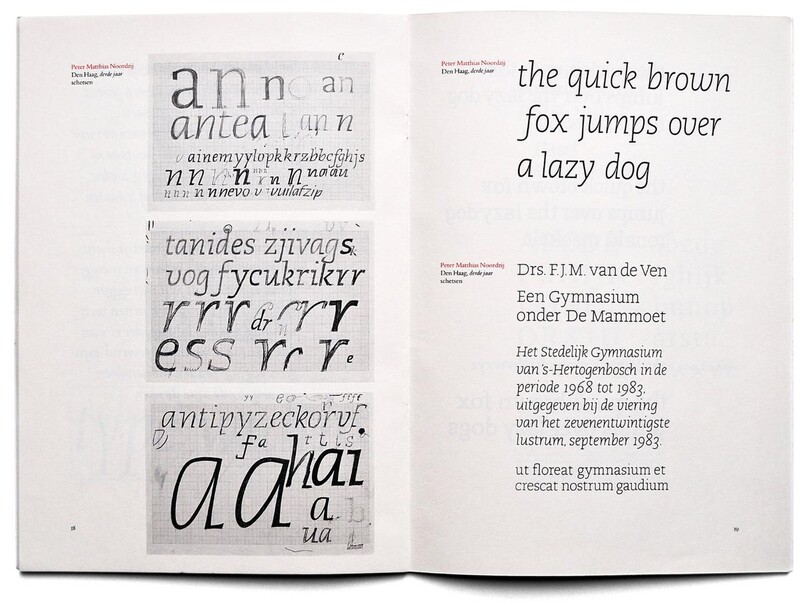 Peter Matthias Noordzij
Den Haag, derde jaar
schetsen
c
an n an
antea
ainemyylopkkrzbbcfghjs
tanides zjivags
vogfycukrikrr
r r r dr r r r
ess r r r e
antipyzeckorvf
fa r t l s
a a hai
a b
ua
18
Peter Matthias Noordzij
Den Haag, derde jaar
schetsen
the quick brown
fox jumps over
a lazy dog
Peter Matthias Noordzij
Den Haag, derde jaar
schetsen
Drs. F.J.M. van de Ven
Een Gymnasium
onder De Mammoet
Het Stedelijk Gymnasium
van 's-Hertogenbosch in de
periode 1968 tot 1983,
uitgegeven bij de viering
van het zevenentwintigste
lustrum, september 1983.
ut floreat gymnasium et
crescat nostrum gaudium
19